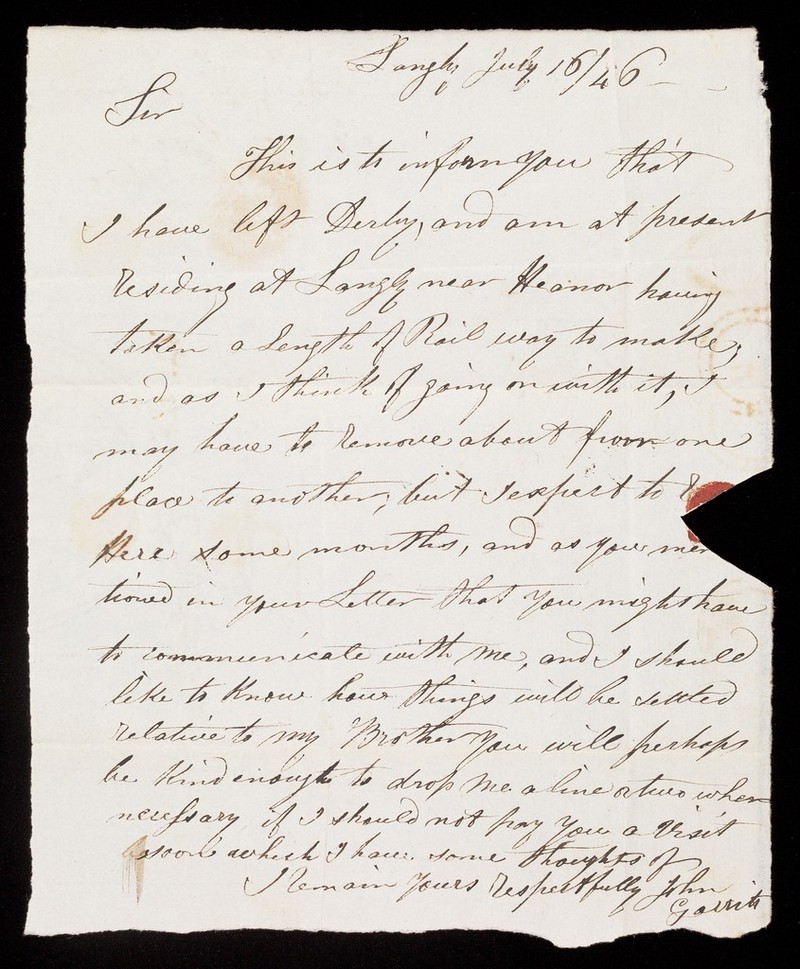 Langly July 16/46
Sir
This is to inform you that
I have left Derby, and am at present
residing at Langly near Heanor having
taken a Length of Rail way to make,
and as I think of going on with it, I
may have to remove about from one
place to another, but I expect to
Here some months, and as you men
tioned in your Letter that you might have
to communicate with me, and I should
like to know how things will be settled
relative to my Brother you will perhaps
be kind enough to drop me a line or two when
necessary if I should not pay you a visit
soon which I have some thoughts of
I Remain yours respectfully John
Garritt